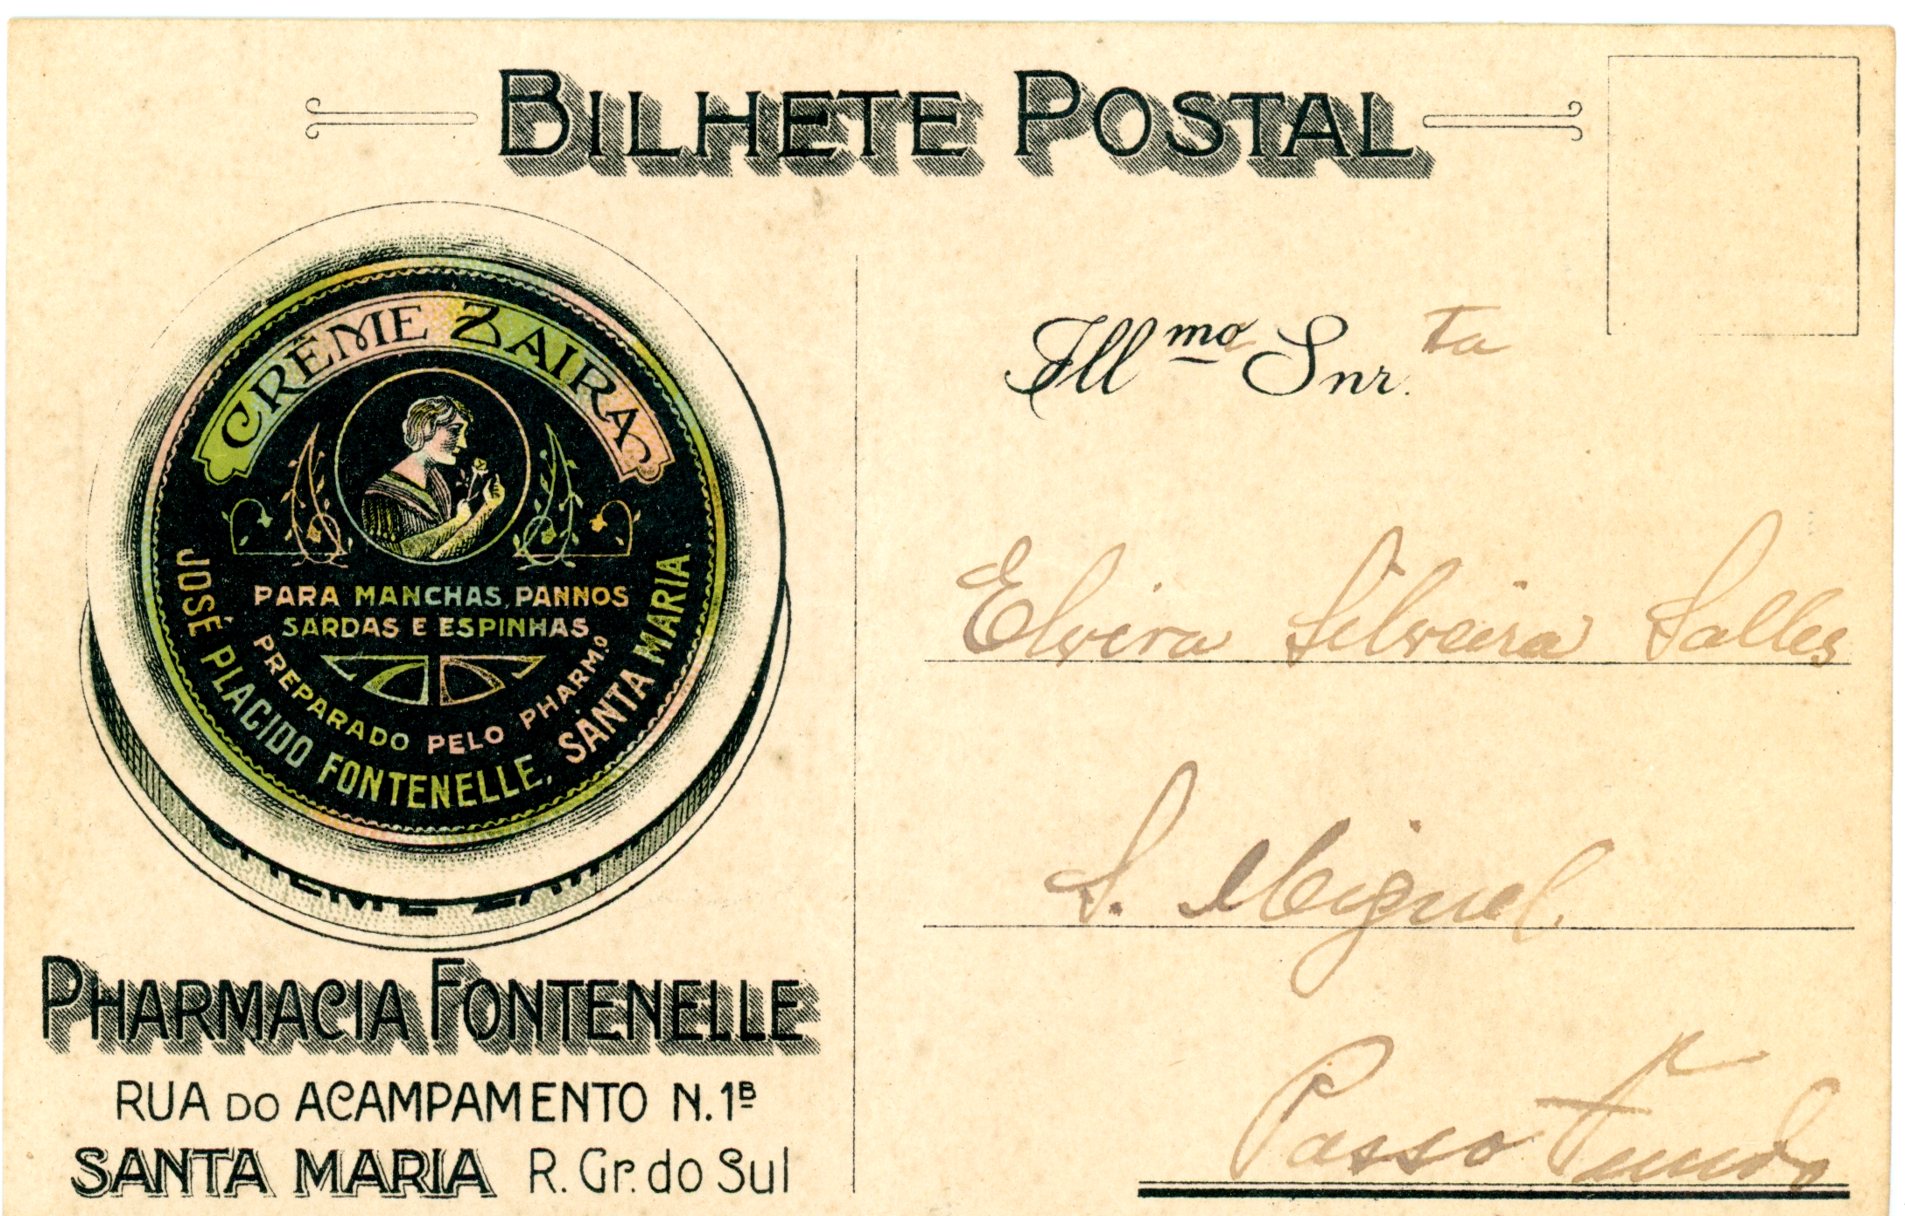 BILHETE POSTAL
CRÊME ZAIRA
PARA MANCHAS, PANNOS
SARDAS E ESPINHAS,
PREPARADO PELO PHARM.º
JOSÉ PLACIDO FONTENELLE, SANTA MARIA.
CRÊME ZAIRA
PHARMACIA FONTENELLE
RUA DO ACAMPAMENTO N. 1B
SANTA MARIA R. Gr. do Sul
Illmo Snr. ta
Elvira Silveira Salles
S. Miguel.
Passo Fundo